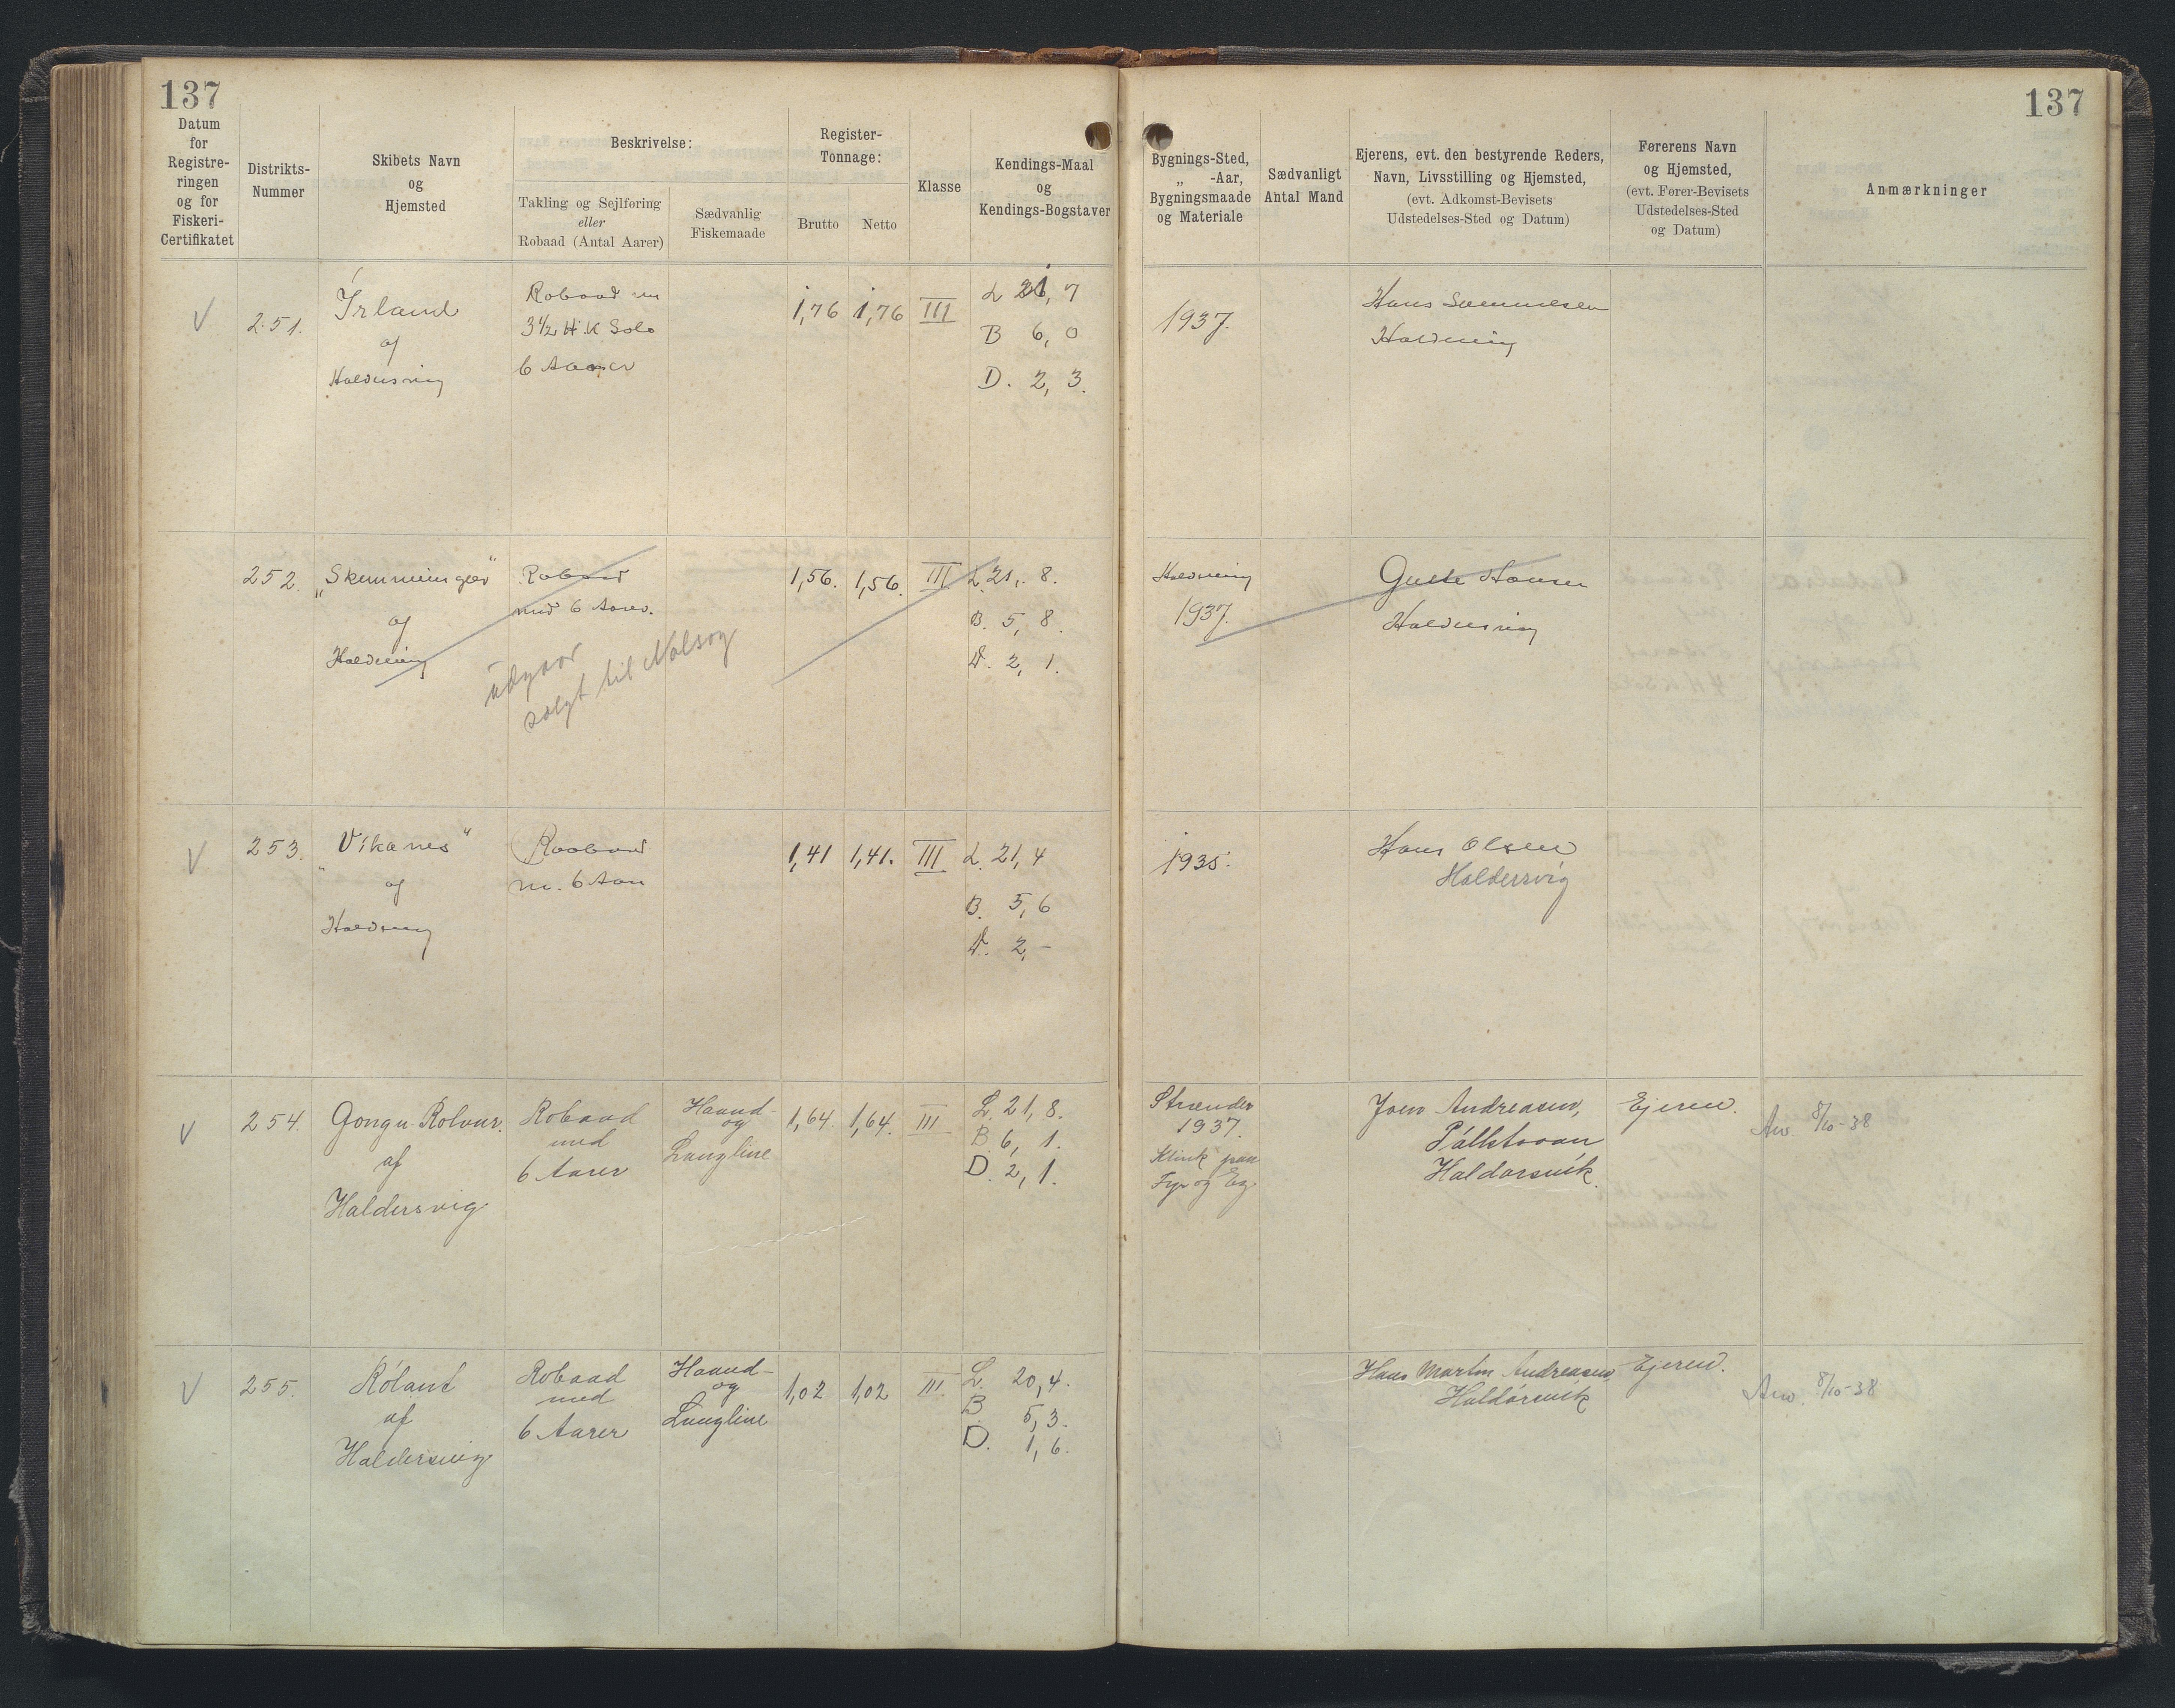 137
137
Datum
for
Registre-
ringen
og for
Fiskeri-
Certifikatet
Distrikts-
Nummer
Skibets Navn
og
Hjemsted
Beskrivelse:
Takling og Sejlføring
eller
Robaad (Antal Aarer)
Sædvanlig
Fiskemaade
Register-
Tonnage:
Brutto Netto
Klasse
Kendings-Maal
og
Kendings-Bogstaver
Bygnings-Sted,
„ -Aar,
Bygningsmaade
og Materiale
Sædvanligt
Antal Mand
Ejerens, evt. den bestyrende Reders,
Navn, Livsstilling og Hjemsted,
(evt. Adkomst-Bevisets
Udstedelses-Sted og Datum)
Førerens Navn
og Hjemsted,
(evt. Fører-Bevisets
Udstedelses-Sted
og Datum)
Anmærkninger
V
251.
Írland
af
Haldersvig
Robaad m
3½ H.K Solo
6 Aarer
1,76 1,76 III
L 21,7
B 6,0
D. 2,3.
1937.
Hans Sammelsen
Haldersvig
252.
„Skemmingur"
af
Haldersvig
Robaad
med 6 Aarer.
udgaar
solgt til Nolsoy
1,56. 1,56. III
L. 21,8.
B. 5,8.
D. 2,1.
Haldersvig
1937.
Hansen
Haldersvig
V
253.
„Vikanes"
af
Haldersvig
Roobaad
m. 6 Aar
1,41 1,41. III
L. 21,4
B. 5,6
D. 2,-
1935.
Hans Olsen
Haldersvig
V
254.
Gongu-Rólvur.
af
Haldersvig
Robaad
med
6 Aarer
Haand-
og
Langline
1,64. 1,64. III
L. 21,8.
B. 6,1.
D. 2,1.
Strænder
1937.
Klink paa
Fyr og Eg.
Joen Andreasen,
Pálstovan
Haldarsvík.
Ejeren.
Anv. 8/10-38
V
255.
Róland
af
Haldersvig
Robaad
med
6 Aarer
Haand-
og
Langline
1,02 1,02 III.
L. 20,4.
B 5,3.
D. 1,6.
Hans Martin Andreasen
Haldórsvik
Ejeren.
Anv. 8/10-38